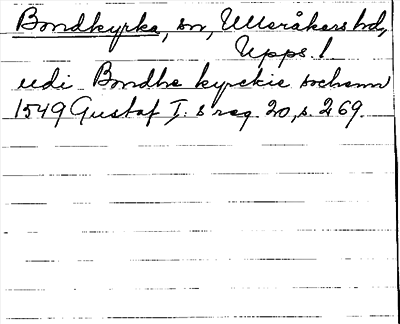 Bondkyrka, sn, Ulleråkers hd,
Upps. l
udi Bondhe kyrckie sochenn
1549 Gustaf I:s reg. 20, s. 269.